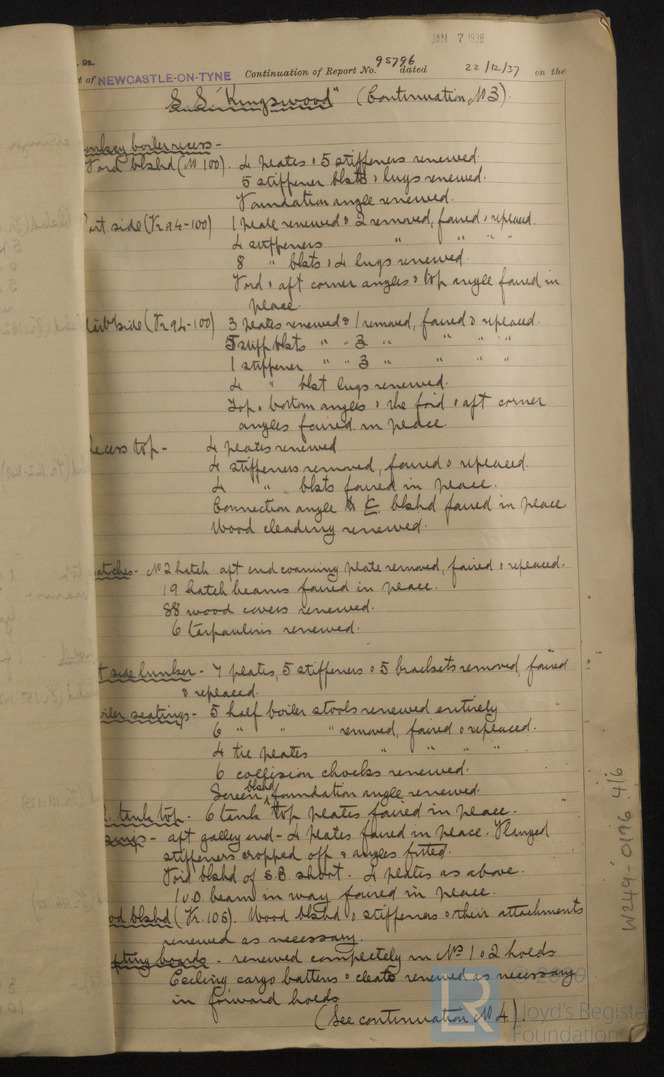 JAN 7 1938
t of NEWCASTLE-ON-TYNE Continuation of Report No. 95796 dated 22/12/37 on the
S.S. "Kingswood" (Continuation No 3).
onkey boiler recess -
Ford blkhd (No 100). 4 plates & 5 stiffeners renewed.
5 stiffener bkts & lugs renewed.
Foundation angle renewed.
Port side (Fr 94-100) 1 plate renewed & 2 removed, faired & replaced.
4 stiffeners " " " "
8 " bkts & 4 lugs renewed.
Ford & aft corner angles & top angle faired in
place.
Starbd side (Fr 94-100) 3 plates renewed & 1 removed, faired & replaced.
5 stiff bkts " " 3 " " " " "
1 stiffener " " 3 " " " " "
4 " bkt lugs renewed.
Top & bottom angles & the ford & aft corner
angles faired in place.
ecess top - 4 plates renewed
4 stiffeners removed, faired & replaced.
4 " bkts faired in place.
Connection angle to E blkhd faired in place
Wood cleading renewed.
atches - No 2 hatch aft end coaming plate removed, faired & replaced.
19 hatch beams faired in place.
88 wood covers renewed.
6 tarpaulins renewed.
t side bunker - 7 plates, 5 stiffeners & 5 brackets removed, faired
& replaced.
oiler seatings - 5 half boiler stools renewed entirely
6 " " " removed, faired & replaced.
4 tie plates " " " "
6 collision chocks renewed.
Screen blkhd foundation angle renewed.
tank top - 6 tank top plates faired in place.
aft galley end - 4 plates faired in place. Flanged
stiffeners cropped off & angles fitted.
Ford blkhd of S.B. short. 4 plates as above.
1 U.D. beam in way faired in place.
od blkhd (Fr. 105). Wood blkhd & stiffeners & their attachments
renewed as necessary.
fting boards - renewed completely in Nos 1 & 2 holds
Ceiling cargo battens & cleats renewed as necessary
in forward holds
(See continuation No 4).
W249-0176 4/6
LR
Lloyd's Register
Foundation